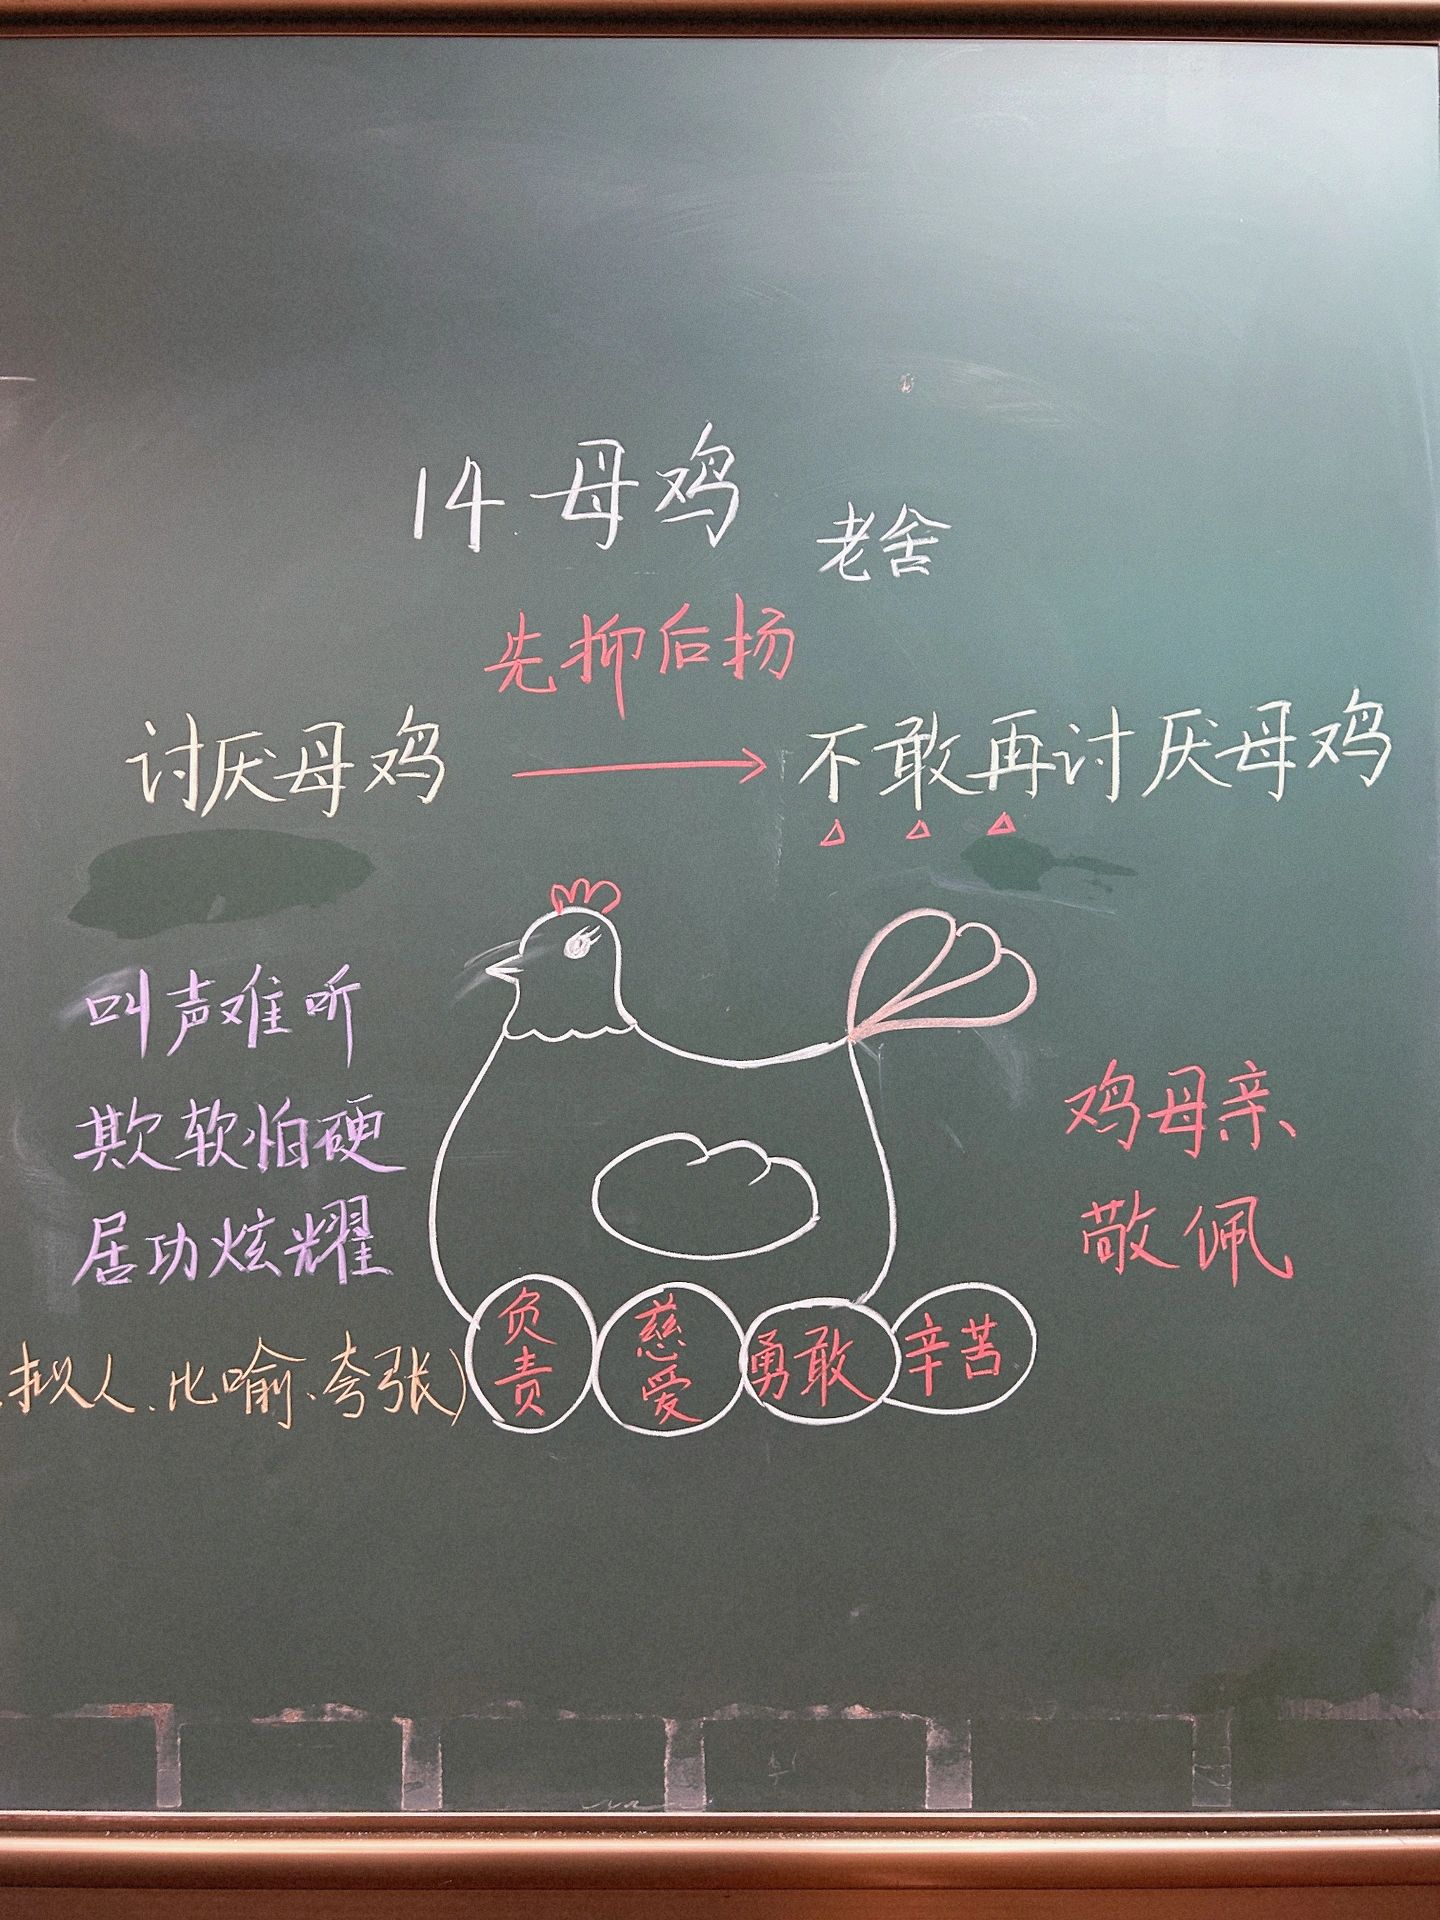 14.母鸡
老舍
先抑后扬
讨厌母鸡 → 不敢再讨厌母鸡
叫声难听
欺软怕硬
居功炫耀
拟人、比喻、夸张)
负责
慈爱
勇敢
辛苦
鸡母亲
敬佩